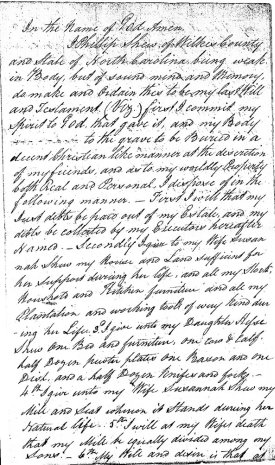 In the Name of God Amen
I Phillip Shew of Wilkes County
and State of North Carolina being weak
in Body, but of sound mind and Memory,
do make and ordain this to be my last Will
and Testament, (Viz) first I commit my
Spirit to God, that gave it, and my Body
to the grave to be Buried in a
decent Christian like manner at the discretion
of my friends, and as to my worldly Property
both Real and Personal, I dispose of in the
following manner. — First I will that my
Just debts be paid out of my Estate, and my
debts be collected by my Executors hereafter
Named. — Secondly I give to my Wife Susan-
nah Shew my House and Land Sufficient for
her Support during her life, and all my Stock
Household and Kitchen furniture and all my
Plantation and working tools of every kind dur-
ing her Life. 3. I give unto my Daughter
Shew One Bed and furniture, one cow & Calf
half Dozen pewter plates One Bason and one
Dish, and a half Dozen Knifes and forks —
4th I give unto my Wife Susannah Shew my
Mill and Seat whereon it Stands during her
Natural life. 5th I will at my Wifes death
that my Mill be equally divided among my
Sons. — 6th My Will and desire is that at